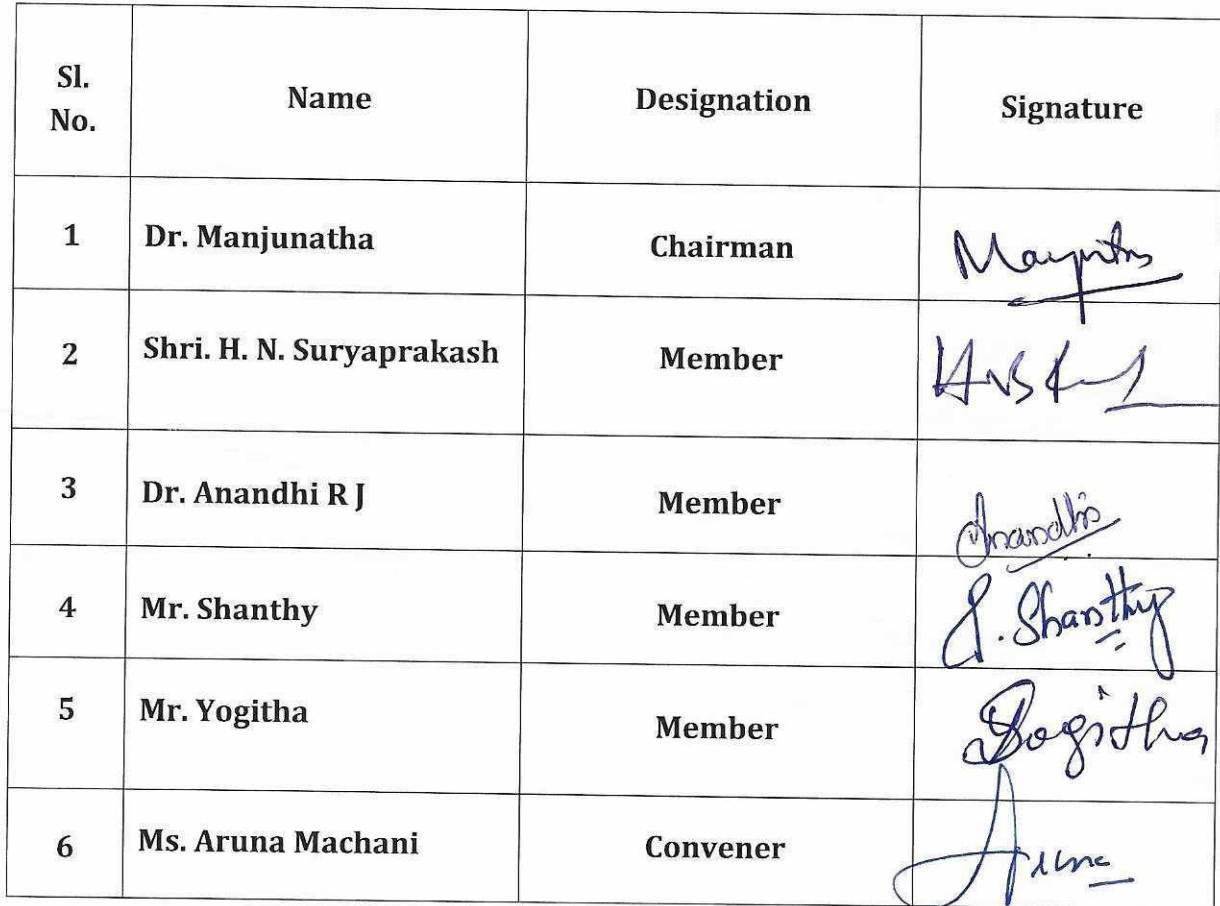 Sl. No. Name Designation Signature
1 Dr. Manjunatha Chairman
2 Shri. H. N. Suryaprakash Member
3 Dr. Anandhi R J Member Anandhi
4 Mr. Shanthy Member J. Shanthy
5 Mr. Yogitha Member Yogitha
6 Ms. Aruna Machani Convener Aruna